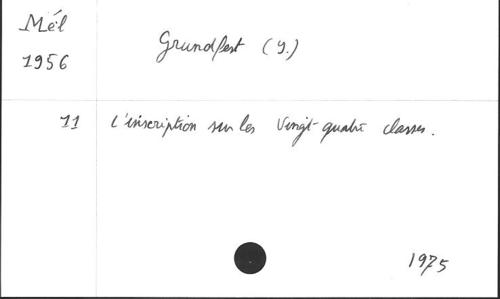 Mél
1956
Grundfest (Y.)
11 L'inscription sur les Vingt-quatre classes.
1975